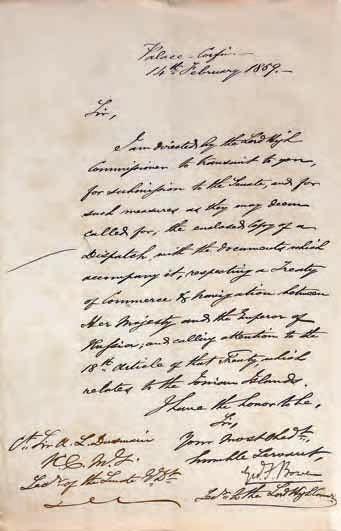 Palace - Corfu -
14th February 1859. -
Sir,
I am directed by the Lord High
Commissioner to transmit to you,
for submission to the Senate, and for
such measures as they may deem
called for, the enclosed Copy of a
Dispatch, with the documents which
accompany it, respecting a Treaty
of Commerce & Navigation between
Her Majesty and the Emperor of
Russia; and calling attention to the
18th Article of that Treaty which
relates to the Ionian Islands.
I have the honor to be,
Sir,
Your most obedt.
humble Servant
Geo. F. Bowen
Secy. to the Lord High Commr.
Sir
K.C.M.G.
Secy. of the Senate